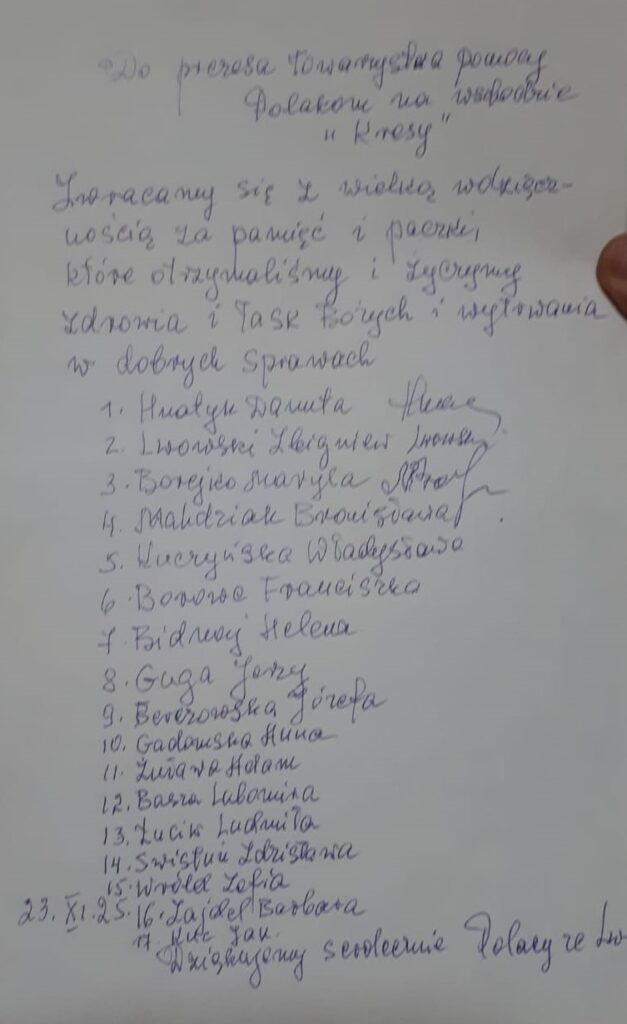 Do prezesa towarzystwa pomocy
Polakom na wschodzie
"Kresy"
Zwracamy się z wielką wdzięcz-
nością za pamięć i paczki,
które otrzymaliśmy i życzymy
zdrowia i łask Bożych i wytrwania
w dobrych sprawach
1. Hnatyk Danuta
2. Lwowski Zbigniew Lwowski
3. Borejko Maryla
4. Mandziak Bronisława
5. Kuczyńska Władysława
6. Borowa Franciszka
7. Helena
8. Guga Jerzy
9. Berezowska Józefa
10. Gadomska Anna
11. Żuława Adam
12. Basza Lubomira
13. Łucik Ludmiła
14. Swistuń Zdzisława
15. Wróbel Zofia
23. XI. 25. 16. Zajdel Barbara
17. Kuc Jan
Dziękujemy serdecznie Polacy ze Lw